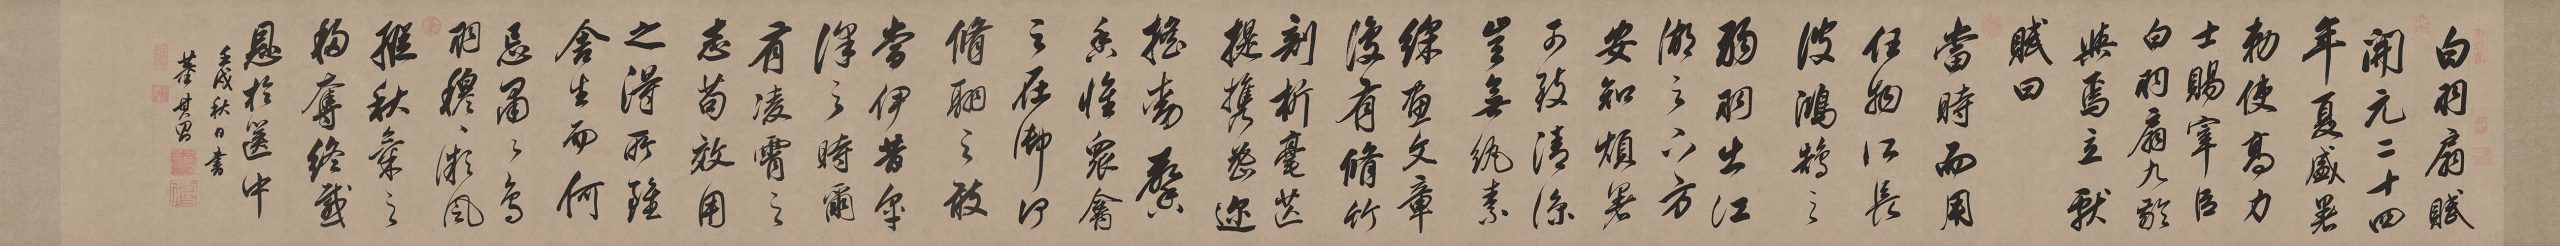 白羽扇賦
開元二十四
年夏盛暑
勅使高力
士賜宰臣
白羽扇九齡
與焉立獻
賦曰
當時而用
任物所長
彼鴻鵠之
弱羽出江
湖之下方
安知煩暑
可致清涼
豈無紈素
綵畫文章
復有脩竹
剖析毫芒
提攜密邇
搖動馨
香惟衆禽
之在御何
脩翮之敢
當伊昔皋
澤之時爾
有凌霄之
志苟效用
之得所雖
舍生而何
忌肅々鳥
羽穆々風
縱秋氣之
移奪終感
恩於篋中
壬戌秋日書
董其昌